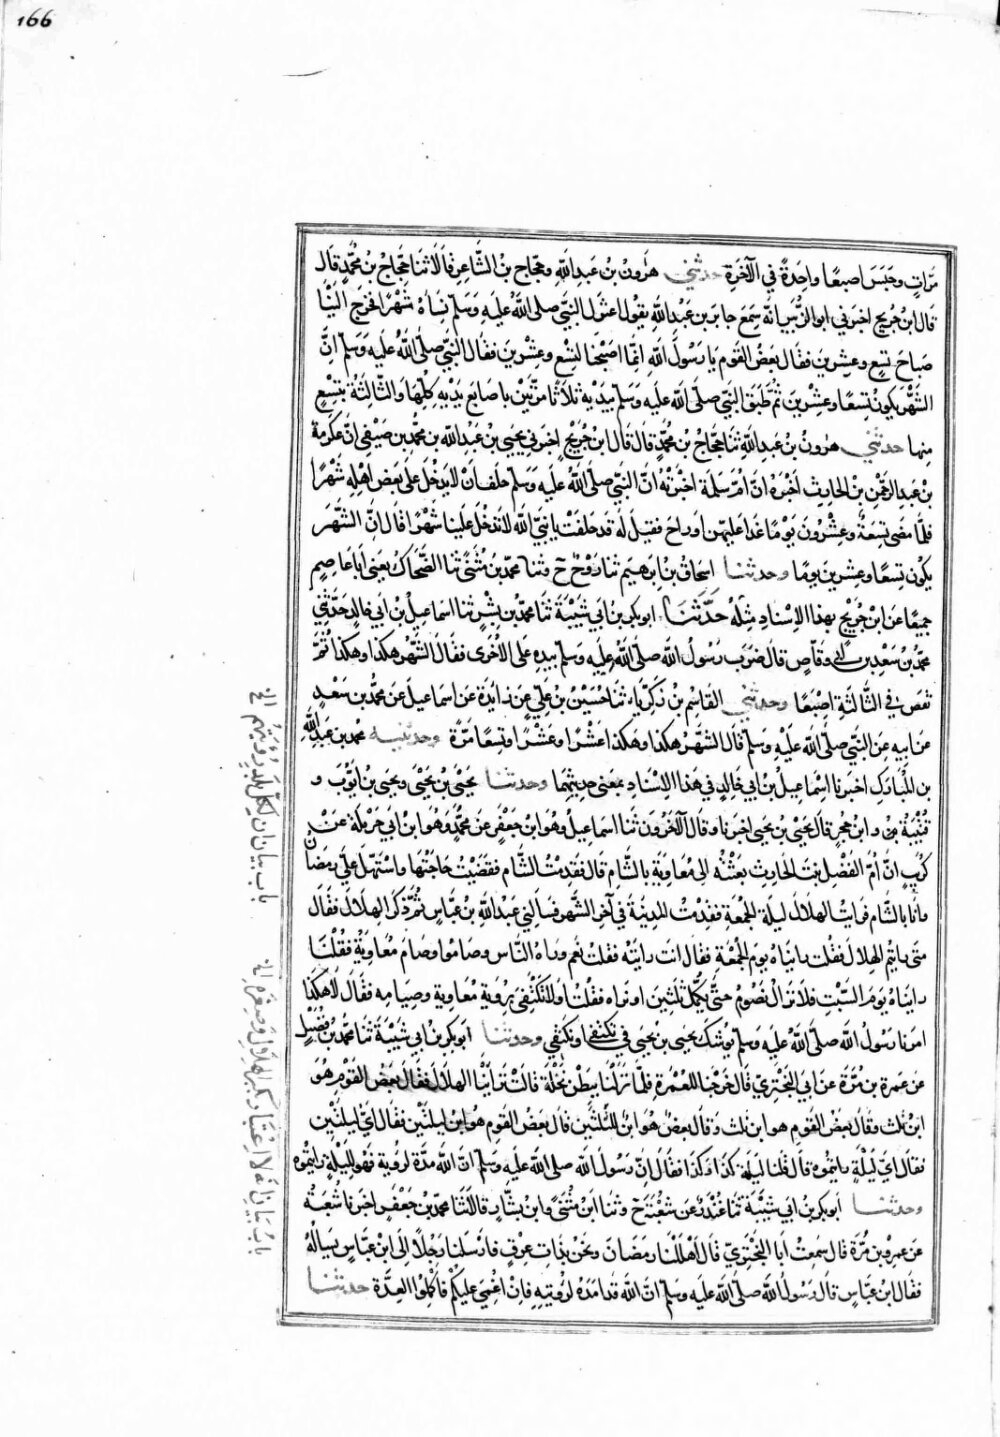 166
مَرّاتٍ وحَبَسَ اصبعًا واحِدَةً في الآخَرةِ حدثني هرونُ بْنُ عَبدِ اللّهِ وحجّاج بْنُ الشَّاعِرِ قَالَا ثنا حَجّاجُ بْنُ مُحَمّدٍ قال
قال ابْنُ جُرَيجٍ اخبَرَني ابو الزُّبَيرِ انّهُ سَمِعَ جابِرَ بنَ عَبْدِ اللّهِ يقولُ اعتَزَلَ النَّبِيّ صلى اللّهُ عَلَيهِ وَسَلّم نِسَاءَهُ شَهْرًا فَخَرَجَ الَيْنَا
صَبَاحَ تِسعٍ وعِشرينَ فقال بَعْضُ القَومِ يا رَسُولَ اللّهِ انَّمَا اصبَحْنا لِتِسْعٍ وعِشْرينَ فقال النَّبِيّ صلّى اللّهُ عَلَيه وَسَلّم انَّ
الشَّهْرَ يكونُ تِسعًا وعِشْرِينَ ثُمَّ طَبَّقَ النَّبِيّ صلّى اللّه عَلَيهِ وَسَلّمَ بِيَدْيهِ ثَلَاثًا مَرَّتَيْنِ باصَابِعِ يَدَيْهِ كُلِّهَا وَالثَّالِثَةَ بِتِسْعٍ
مِنها حدثني هرونُ بْنُ عَبدِ اللّهِ ثنا حَجّاجُ بْنُ مُحَمّدٍ قال قال ابْنُ جُرَيْجٍ اخبَرَني يحيَى بْنُ عَبْدِ اللّه بن مُحَمّدِ بن صَيْفِي انّ عِكْرِمَةَ
بْنَ عَبدِ الرَّحْمٰنِ بْنِ الحَارِثِ اخْبَرَهُ انَّ امَّ سَلَمَةَ اخبَرَتْهُ انَّ النَّبِيّ صلّى اللّه عَلَيهِ وَسَلّم حَلَفَ انْ لا يَدْخُلَ عَلى بَعضِ اهْلِهِ شَهْرًا
فلَمَّا مَضَى تِسعَةٌ وعِشْرُونَ يَوْمًا غَدَا عَلَيهِمْ او رَاحَ فَقِيلَ لَهُ قَد حَلَفْتَ يا نَبِيَّ اللّهِ لَا تدخُلُ عَلَينا شَهْرًا قال انَّ الشَّهْرَ
يكُونُ تِسعًا وعِشرينَ يومًا وحدثنا اسحَاقُ بْنُ ابرهِيمَ ثنا رَوْحٌ ح وثنا محمّدُ بْنُ مُثَنًّى ثنا الضَّحَّاكُ يَعْنِي أَبَا عَاصِمٍ
جَمِيعًا عَنِ ابْنِ جُرَيْجٍ بِهَذا الاِسْنَادِ مِثْلَهُ حَدَّثَنَا ابو بكرِ بْنُ ابي شَيْبَةَ ثَنا محمّدُ بْنُ بِشْرٍ ثنا اسماعِيلُ بْنُ ابي خَالِدٍ حَدَّثَنِي
مُحَمَّدُ بْنُ سَعْدِ بنِ ابي وَقّاصٍ قال ضَرَبَ رَسُولُ اللّهِ صلّى اللّهُ عَلَيهِ وَسَلّم بِيَدِهِ عَلى الأُخْرَى فقَالَ الشَّهْرُ هكَذا وهكَذا ثُمَّ
نقَصَ في الثَّالِثَةِ اصْبَعًا وحدثني القَاسِمُ بْنُ زَكَرِيَّاءَ ثنا حُسَيْنُ بْنُ عَلِيٍّ عَنْ زَايِدَةَ عَنْ اسماعِيلَ عَنْ محمّدِ بنِ سَعْدٍ
عَنْ ابِيهِ عَنِ النَّبِيّ صلى اللّه عَلَيْهِ وَسَلّم قَال الشَّهْرُ هكَذا وهكذا وهكَذا عَشْرًا وعَشْرًا وتِسعًا مَرّةً وحدثنيه محمّد بن عَبدِ اللّهِ
بنِ المُبَارَكِ اخبَرَنا اسْمَاعِيلُ بْنُ ابي خَالِدٍ في هَذا الاِسْنَادِ بِمَعنى حَدِيثِهِمَا وحدثنا يَحْيَى بْنُ يَحْيَى ويحيى بنُ ايّوبَ و
قُتَيْبَةُ وابنُ حُجرٍ قَالَ يَحْيَى بْنُ يَحيى اخبَرنا وقَالَ الآخَرُونَ ثنا اسماعِيلُ وهُوَ ابْنُ جَعْفَرٍ عَنْ مُحَمَّدٍ وَهُوَ ابْنُ ابي حَرْمَلَةَ عَنْ
كُرَيْبٍ انَّ أُمَّ الفَضْلِ بِنتَ الحَارِثِ بَعَثَتْهُ الى مُعَاوِيَةَ بالشّامِ قَالَ فَقَدِمْتُ الشّام فقَضَيْتُ حَاجَتَهَا واسْتُهِلَّ عَلَيَّ رَمَضَانُ
وأنَا بالشّام فرَايتُ الهِلالَ لَيلَةَ الجُمْعَةِ فقَدِمْتُ المَدِينَةَ في آخِرِ الشَّهْرِ فسَالَنِي عَبْدُ اللّهِ بْنُ عَبّاسٍ ثُمَّ ذَكَرَ الهِلَالَ فقَالَ
مَتَى رايتُم الهِلالَ فقُلتُ رايناهُ يومَ الجُمْعَةِ فقال انتَ رايتَهُ فقُلتُ نَعَم ورَاهُ النَّاس وصَامُوا وصَامَ مُعَاوِيَةُ فقُلْنَا
رايناهُ يَوْمَ السَّبْتِ فلَا نَزَالُ نَصُومُ حَتَّى نُكَمِّلَ ثَلثِينَ او نَراه فقُلتُ اوَلَا تكْتَفِي بِرُؤيَةِ مُعَاوِيَةَ وصِيَامِهِ فقَالَ لَا هكَذا
امَرَنا رَسُولُ اللّه صلّى اللّهُ عَلَيهِ وَسَلّم وشَكَّ يَحيَى بنُ يَحيَى في نَكتَفِي او تَكتَفِي وحدثنا ابو بَكرِ بنُ ابي شَيبَةَ ثنا مُحمّدُ بن فُضَيْلٍ
عَنْ عَمرِو بْنِ مُرَّةَ عَنْ ابي البَخْتَرِيِّ قَال خَرَجْنا لِلعُمْرَةِ فلَمّا نَزَلْنا بِبَطْنِ نَخْلَةَ قَالَ تَرَايَنَا الهِلَالَ فَقَالَ بَعضُ القَومِ هُوَ
ابْنُ ثَلَثٍ وقَالَ بعضُ القَومِ هُوَ ابْنُ لَيْلَتَيْنِ فقَال ايَّ لَيلَةٍ
فقَالَ ايَّ لَيْلَةٍ رايتُمُوه قَالَ قُلنَا لَيلَةَ كَذَا وكَذا فقَالَ انَّ رَسُولَ اللّه صلى اللّه عَلَيهِ وَسَلّم قال انَّ اللّه مَدَّهُ لِرُؤيَةٍ فهُوَ لِلَيْلَةٍ رايتُمُوه
وحدثنا ابو بكرِ بنُ ابي شَيْبَةَ ثَنا غُنْدَرٌ عَنْ شُعْبَةَ ح وثنا ابْنُ مُثَنًّى وابن بَشّارٍ قَالَا ثَنا محمّدُ بْنُ جَعْفَرٍ اخبَرنا شُعْبَةُ
عَنْ عَمرِو بن مُرّةَ قال سَمِعتُ ابَا البَخْتَرِيّ قَالَ اهْلَلْنا رَمَضَانَ ونَحْنُ بِذَاتِ عِرْقٍ فارْسَلنا رَجُلًا الَى ابْنِ عَبّاسٍ يَسالُهُ
فقَالَ ابْنُ عَبّاسٍ قَالَ رَسُولُ اللّهِ صلّى اللّهُ عَلَيهِ وَسَلّم انَّ اللّهَ قَد امَدَّهُ لِرُؤيَتِهِ فَاِنْ اُغْمِيَ عَلَيكُمْ فَأكْمِلُوا العِدَّةَ حدثنا
باب بيان ان لكل بلد رؤيتهم الخ
باب بيان انه لا اعتبار بكبر الهلال وصغره الخ